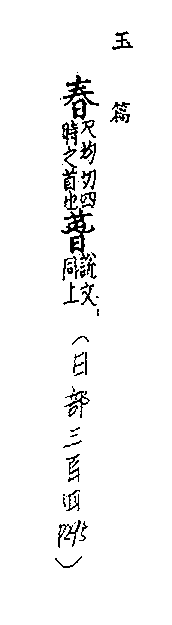 玉篇
春尺均切四時之首也萅說文同上
（日部三百四P245）